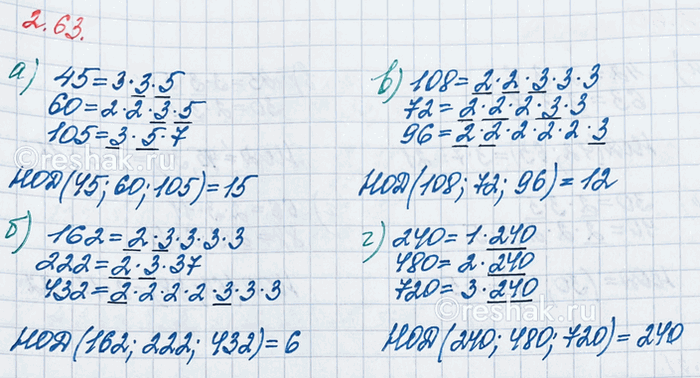 2.63.
а) 45=3·3·5
60=2·2·3·5
105=3·5·7
НОД(45; 60; 105)=15
б) 162=2·3·3·3·3
222=2·3·37
432=2·2·2·2·3·3·3
НОД(162; 222; 432)=6
в) 108=2·2·3·3·3
72=2·2·2·3·3
96=2·2·2·2·2·3
НОД(108; 72; 96)=12
г) 240=1·240
480=2·240
720=3·240
НОД(240; 480; 720)=240
©reshak.ru
©reshak.ru
©reshak.ru
©reshak.ru